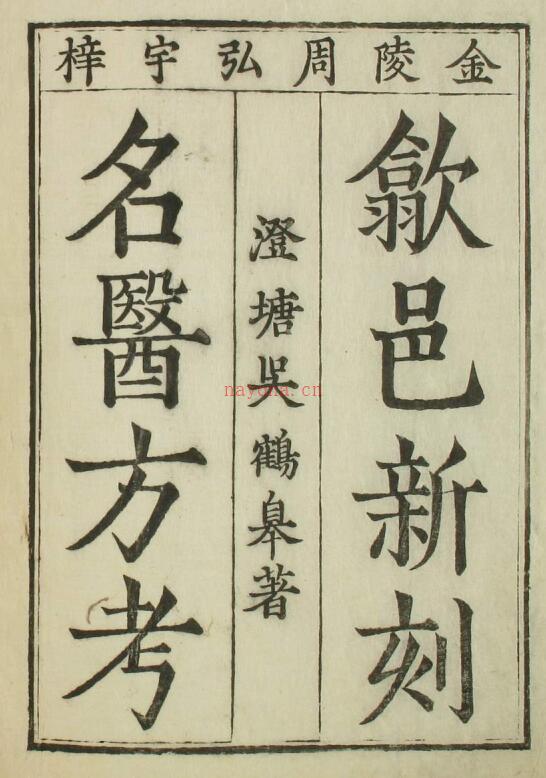 金陵周弘宇梓
歙邑新刻
澄塘吳鶴皋著
名醫方考
nayona.cn